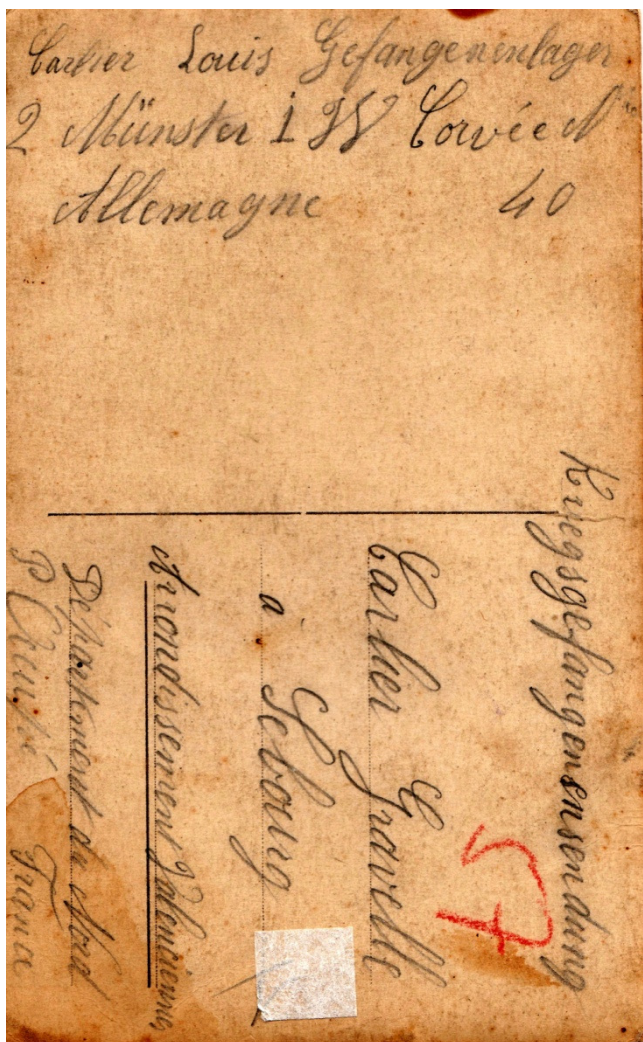 Carlier Louis Gefangenenlager
2 Münster i W Corvée N°
Allemagne 40
Kriegsgefangensendung
Carlier Gravelle
a Sebourg
Arrondissement Valenciennes
Département du Nord
France